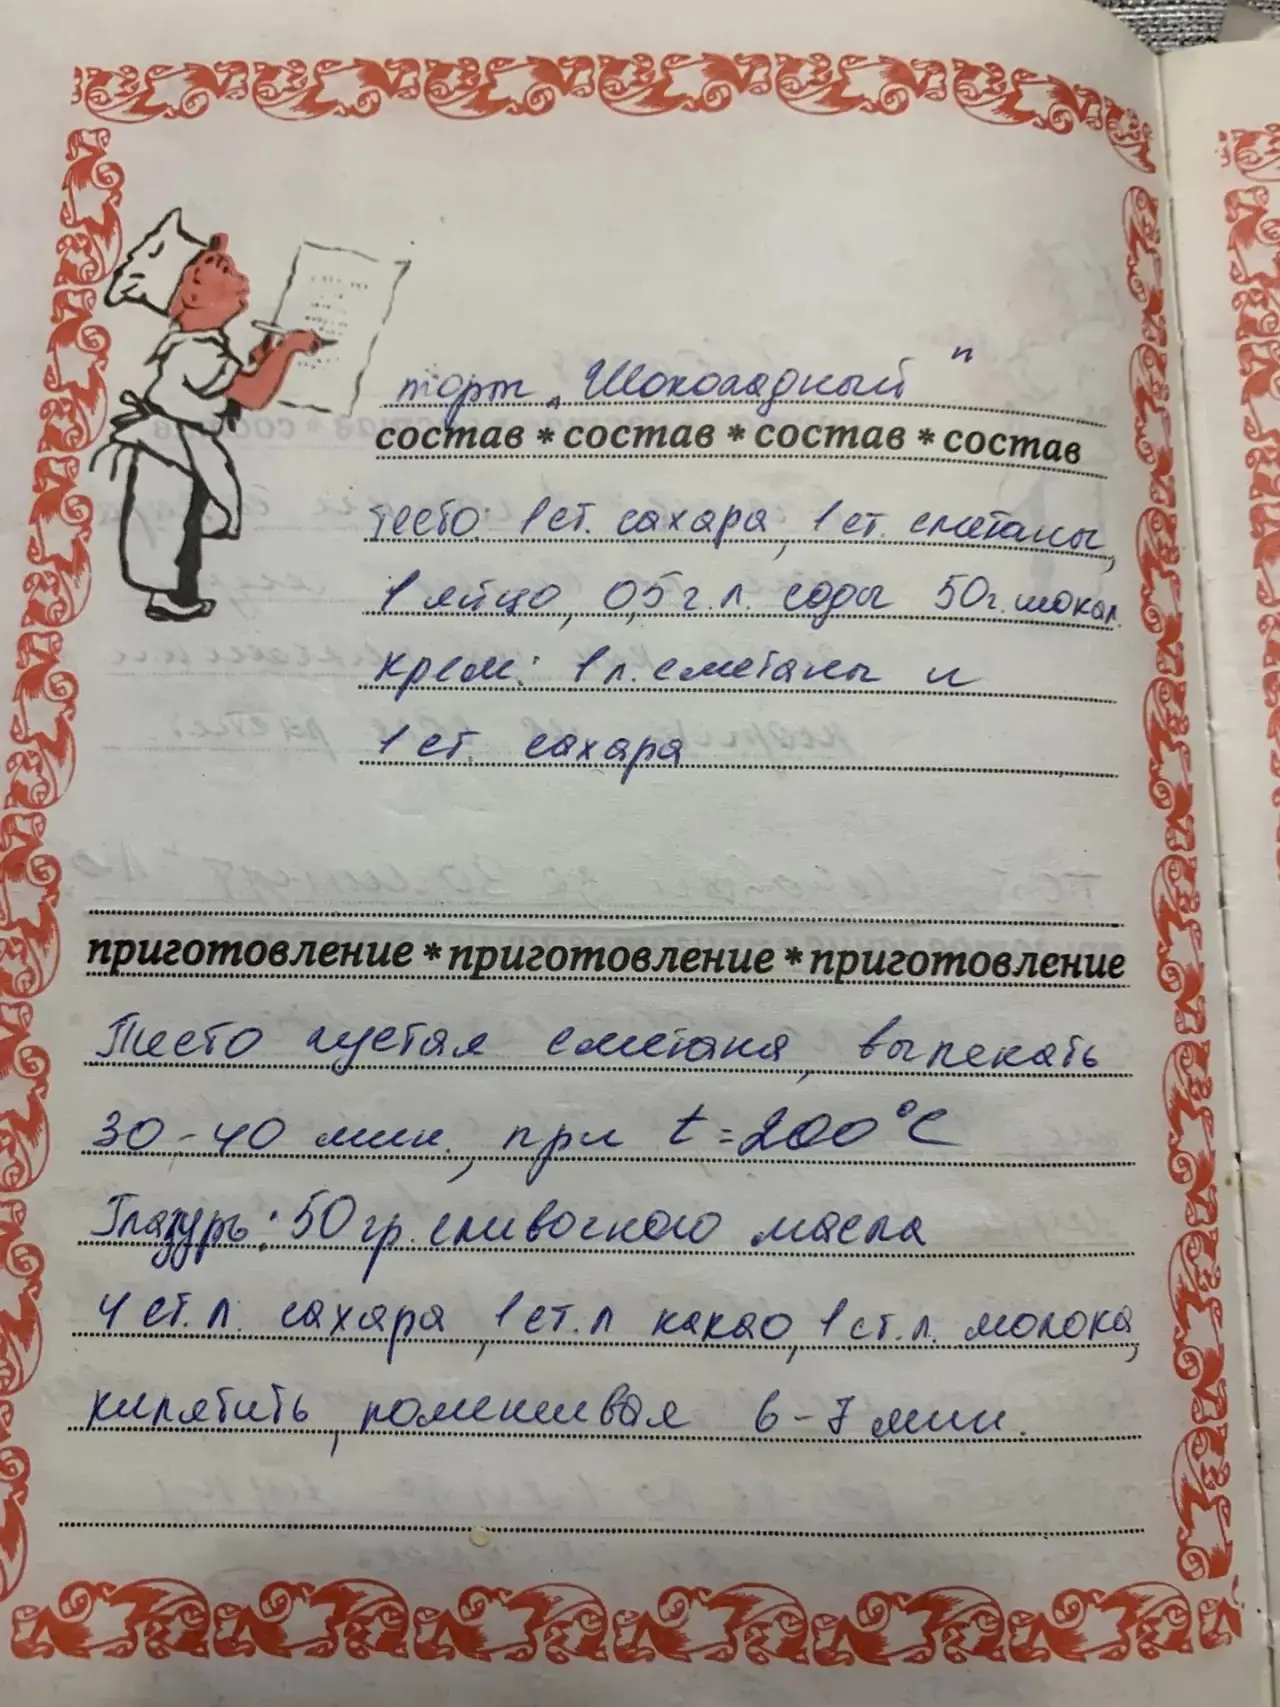 торт „Шоколадный"
состав * состав * состав * состав
тесто: 1 ст. сахара, 1 ст. сметаны,
1 яйцо, 0,5 г. л. соды 50 г. шокол.
крем: 1 л. сметаны и
1 ст. сахара
приготовление * приготовление * приготовление
Тесто густая сметана, выпекать
30-40 мин., при t=200°С
Глазурь: 50 гр. сливочного масла
4 ст. л. сахара, 1 ст. л какао, 1 ст. л. молока,
кипятить, помешивая 6-7 мин.